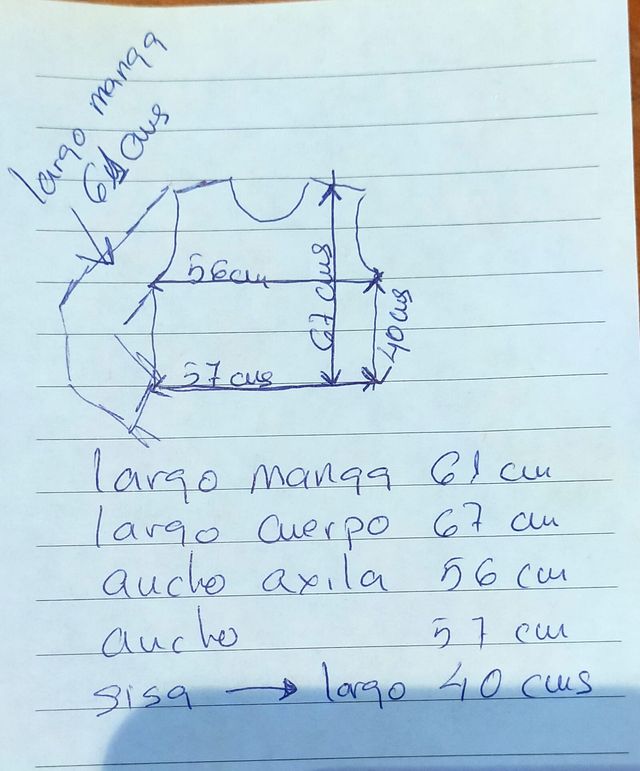 largo manga
61 cms
56 cm
67 cms
40 cms
57 cms
largo manga 61 cm
largo cuerpo 67 cm
ancho axila 56 cm
ancho 57 cm
sisa → largo 40 cms